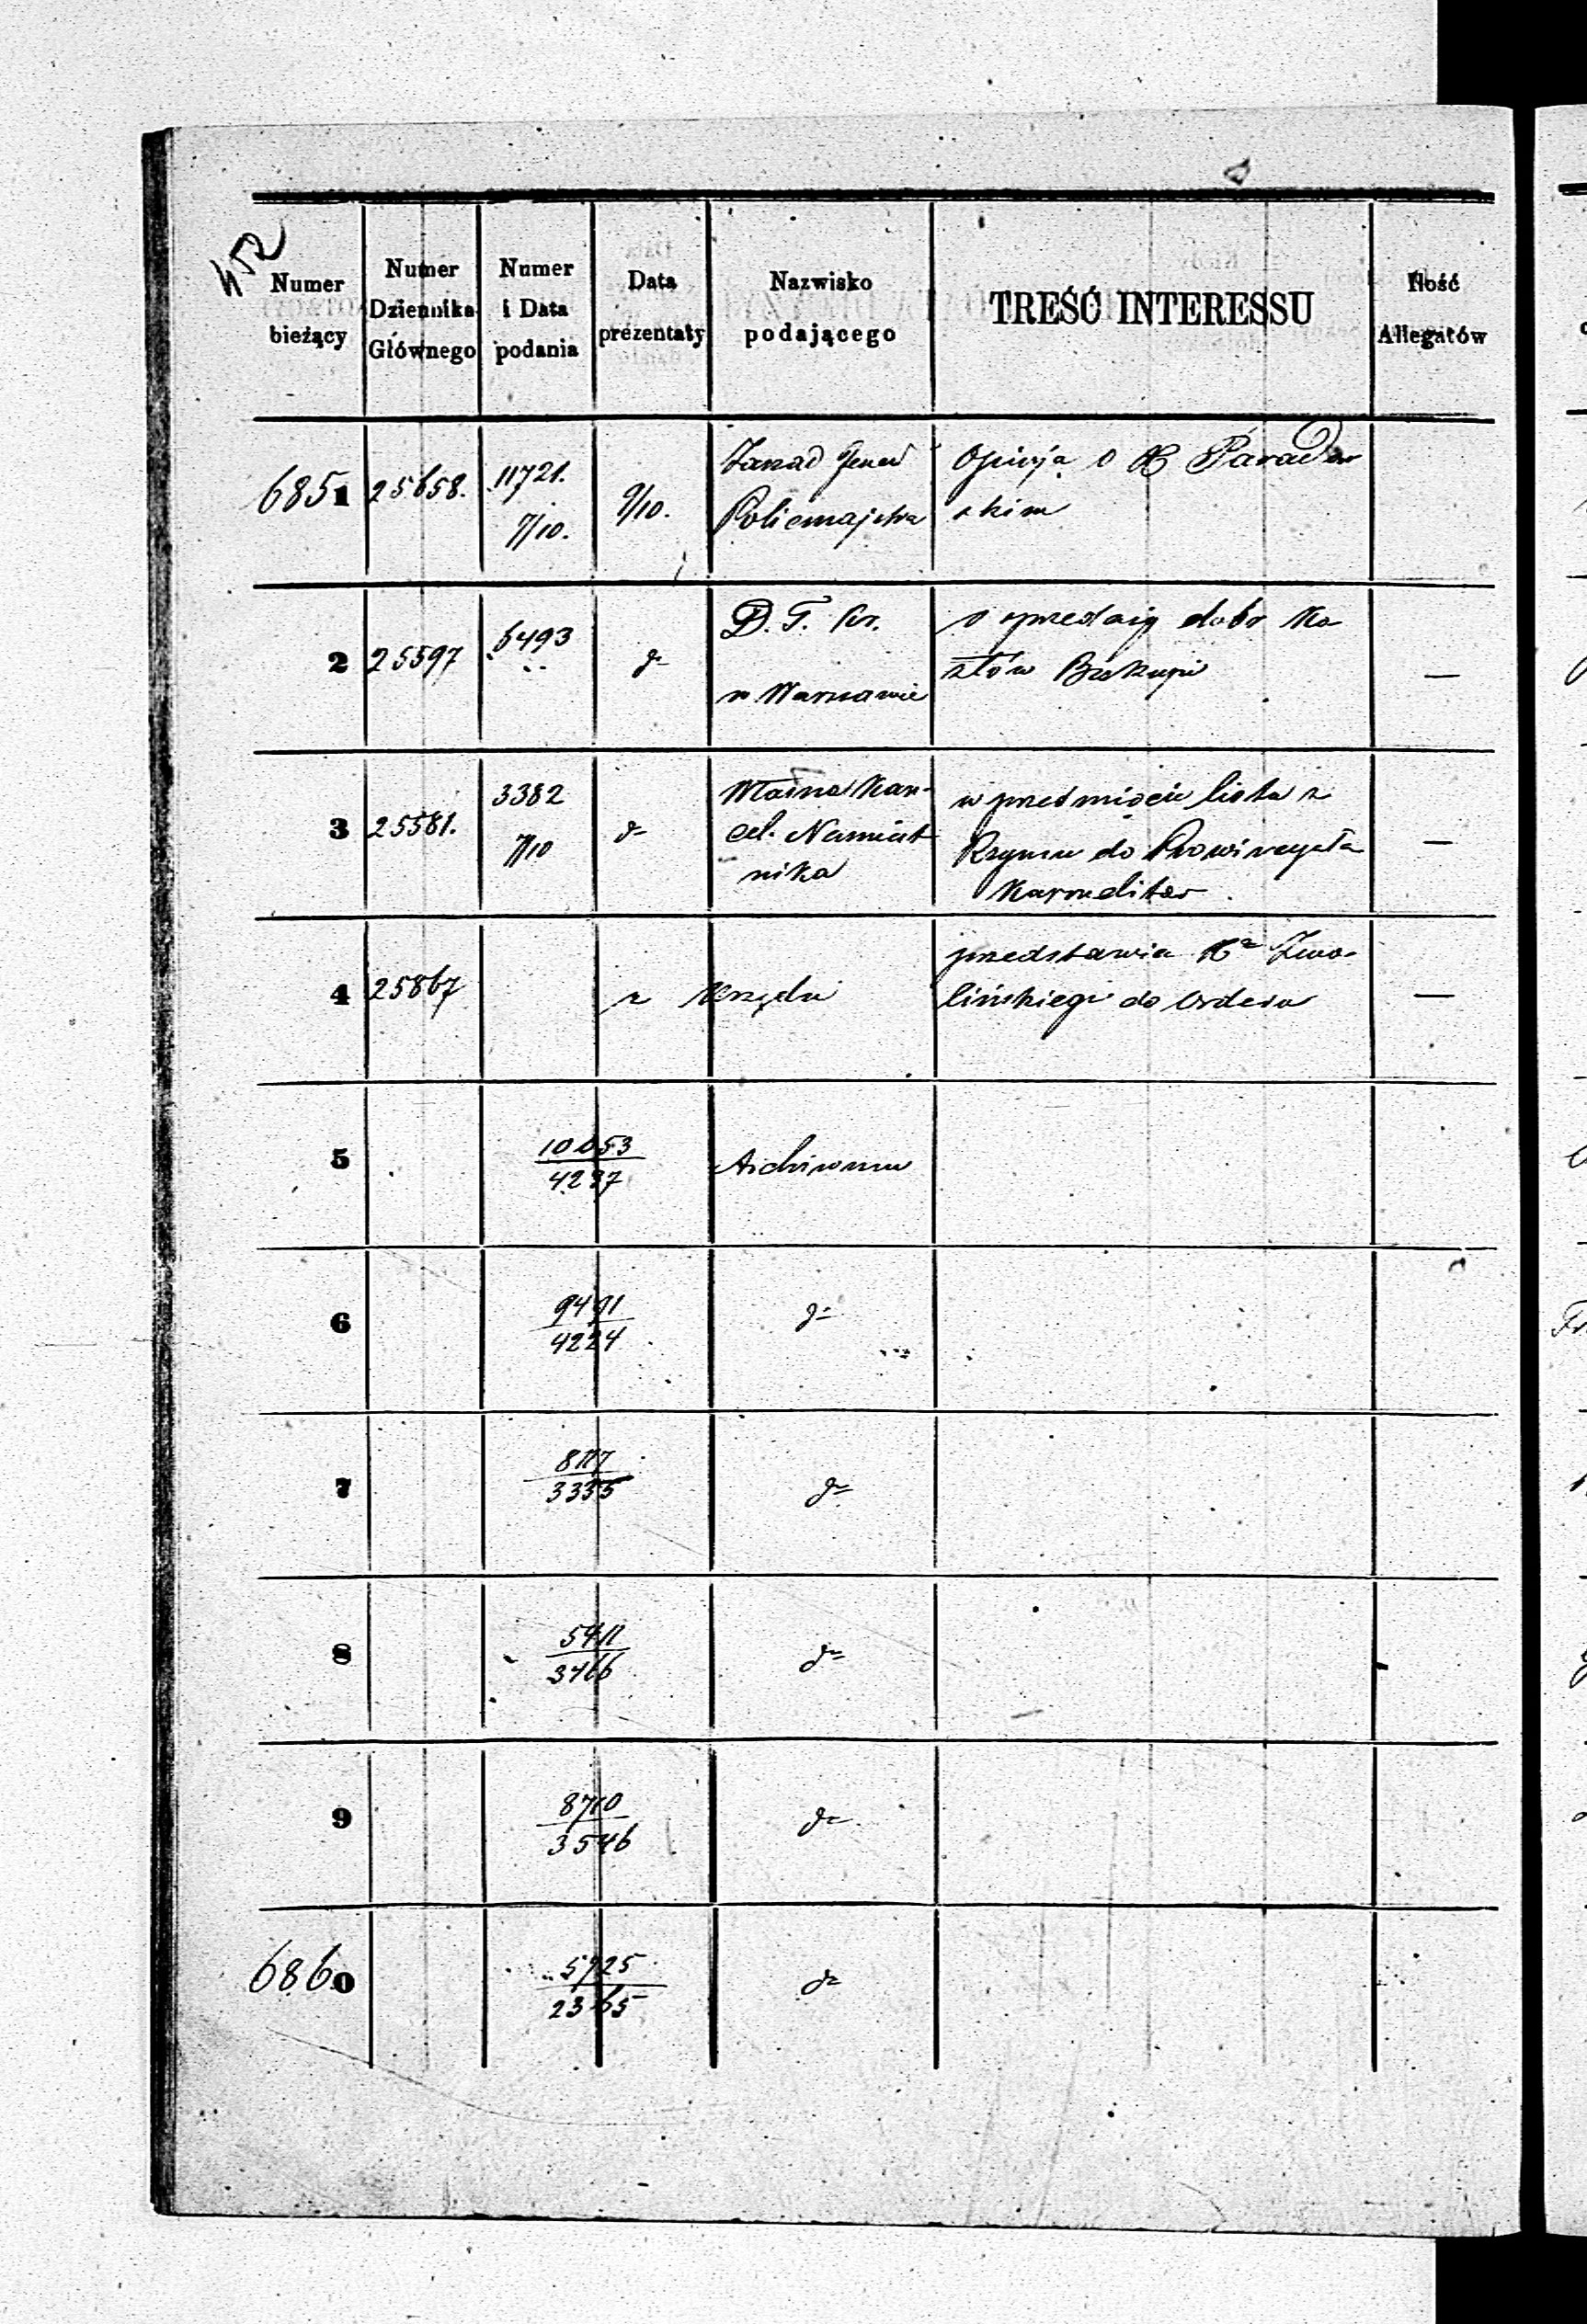 452
Numer bieżący
Numer Dziennika Głównego
Numer i Data podania
Data prezentaty
Nazwisko podającego
TREŚĆ INTERESSU
Ilość Allegatów
6851 25658. 11721. 7/10. 9/10. Zarząd Gener Policmajstra
Opinja o X Parador
skim
2 25597 6493 d° D. T. Kr. w Warszawie
o sprzedaży dobr Ko
złów Biskupi —
3 25581. 3382 7/10 d° Własna Kan-
cel. Namiest
nika
w przedmiocie listu z
Rzymu do Prowincyała
Karmelitów. —
4 25867 z Urzędu
przedstawia Xa Zwo-
lińskiego do orderu —
5 10053
4237 Archiwum
6 9491
4224 d°
7 8117
3335 d°
8 5411
3466 d°
9 8710
3546 d°
6860 5925
2365 d°